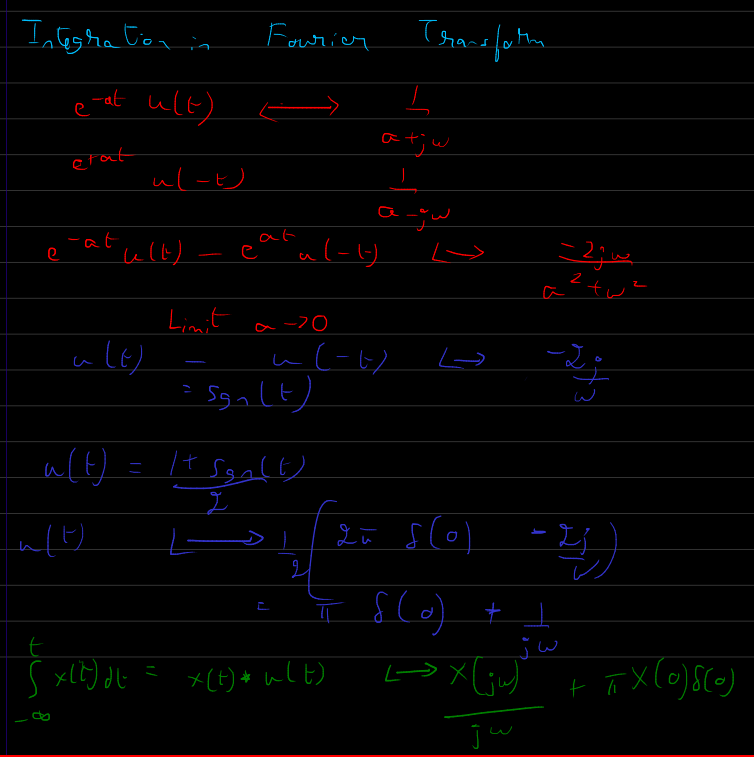 Integration in Fourier Transform
e^{-at} u(t) ⟷ 1/(a+jω)
e^{+at} u(-t) 1/(a-jω)
e^{-at} u(t) - e^{at} u(-t) ↔ -2jω/(a²+ω²)
Limit a→0
u(t) - u(-t) ↔ -2j/ω
= Sgn(t)
u(t) = (1+Sgn(t))/2
u(t) ⟷ 1/2 (2π δ(0) - 2j/ω)
= π δ(0) + 1/jω
∫_{-∞}^{t} x(t)dt = x(t)*u(t) ↔ X(jω)/jω + πX(0)δ(0)